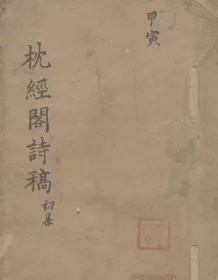 甲寅
枕經閣詩稿初集